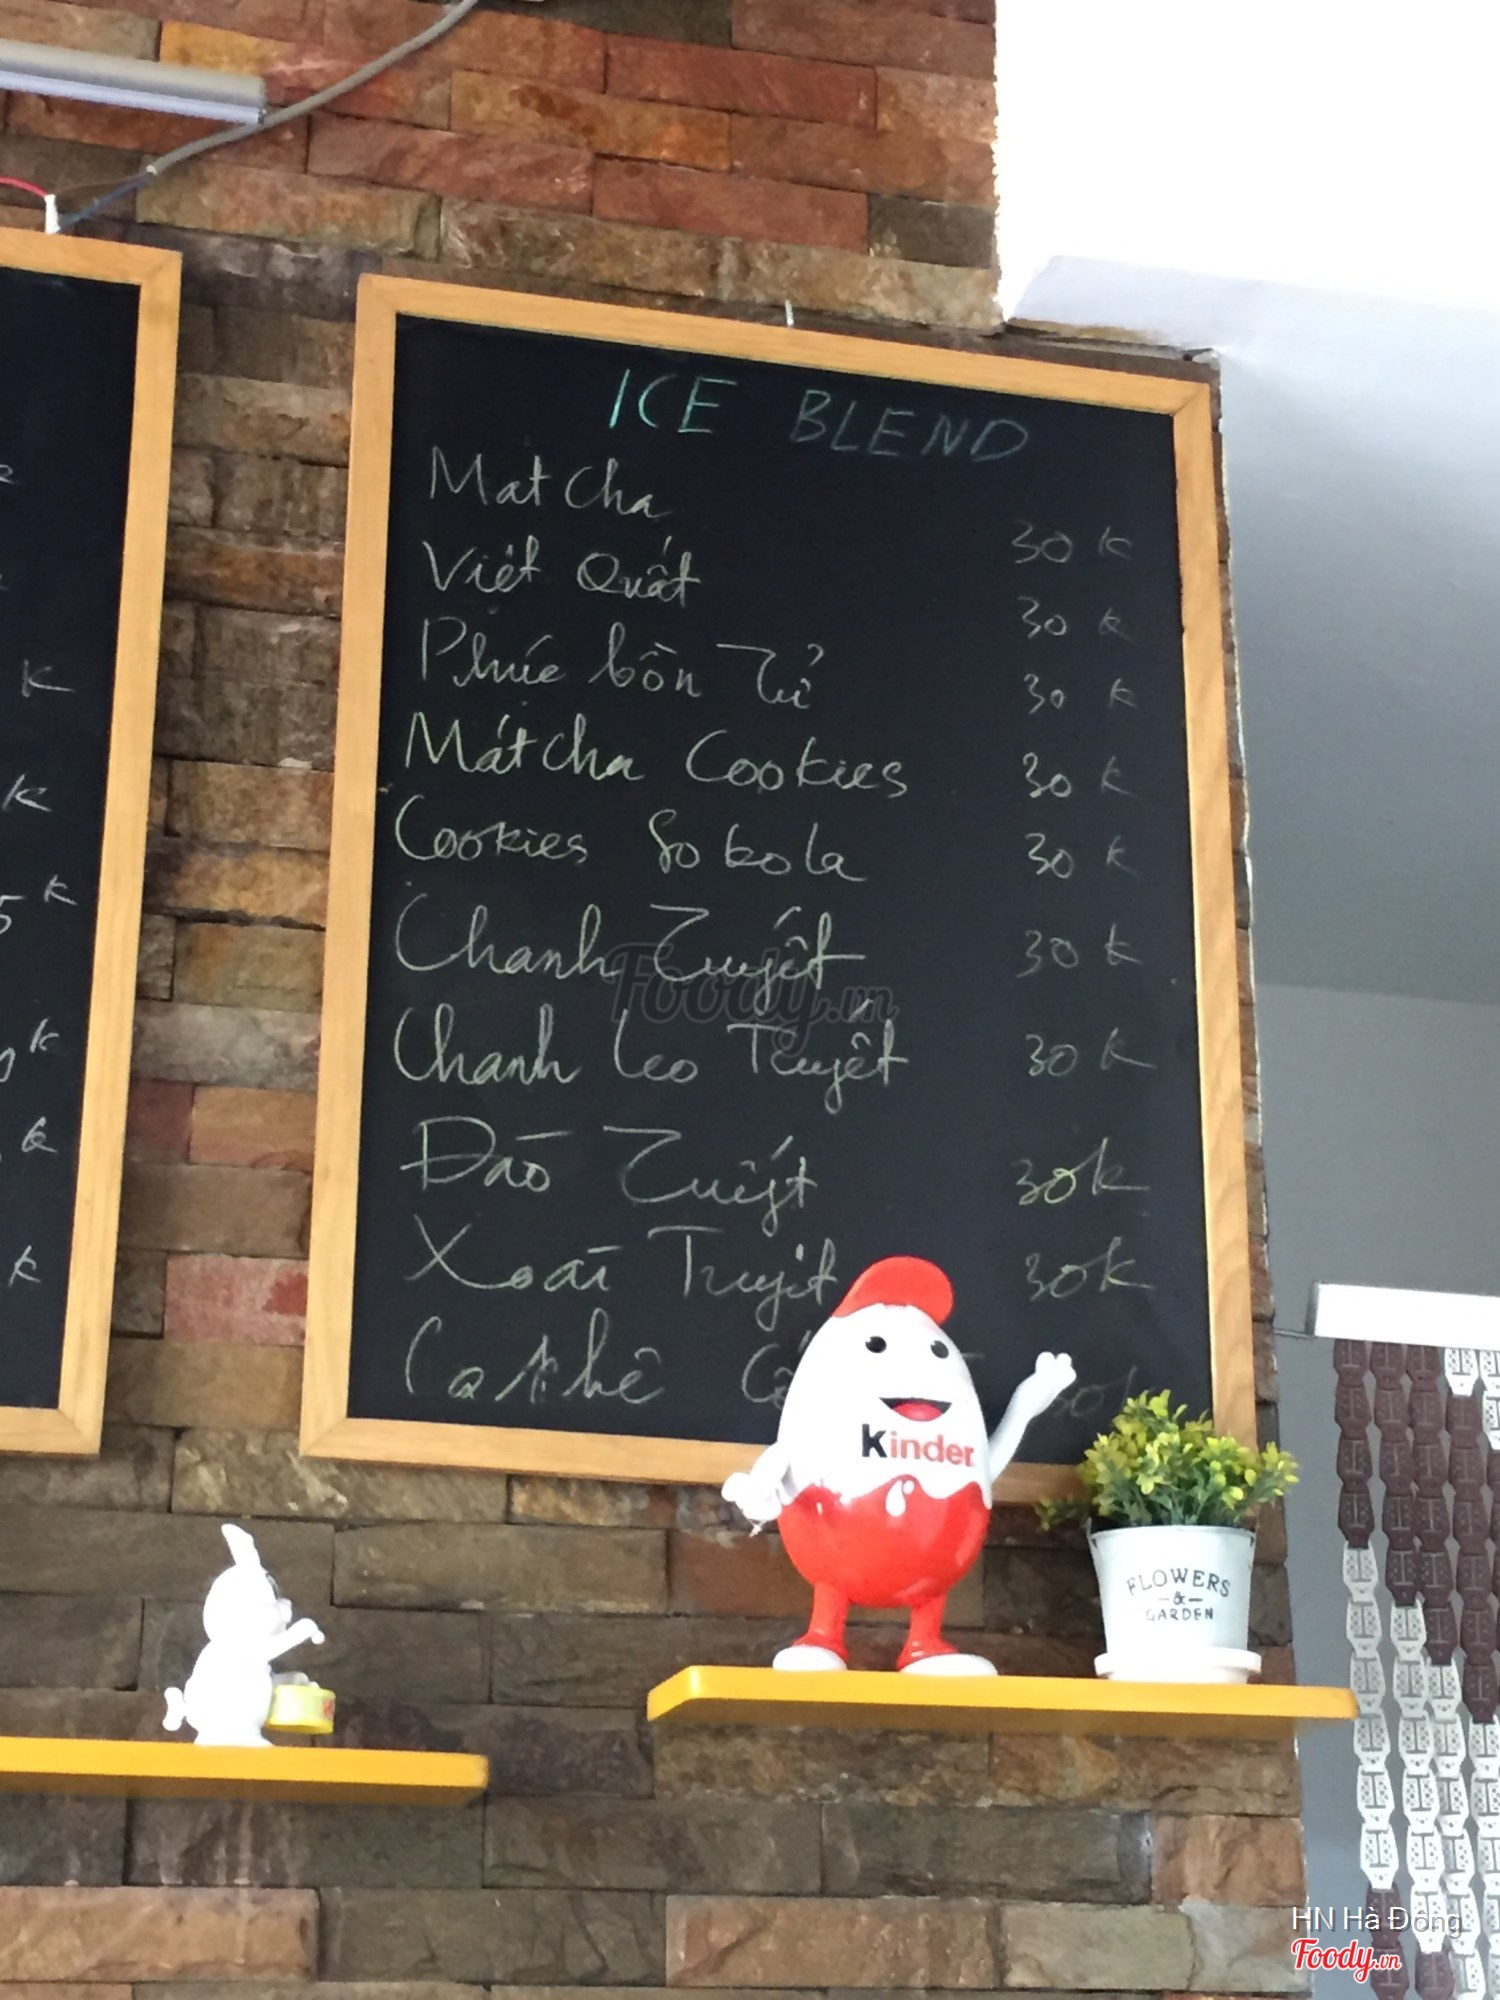 ICE BLEND
Matcha 30k
Việt Quất 30k
Phúc bồn Tử 30k
Mátcha Cookies 30k
Cookies Sokola 30k
Chanh Tuyết 30k
Chanh leo Tuyết 30k
Đào Tuyết 30k
Xoài Tuyết 30k
Cà phê
k
k
5k
k
k
k
Kinder
FLOWERS
&
GARDEN
Foody.vn
HN Hà Đông
Foody.vn